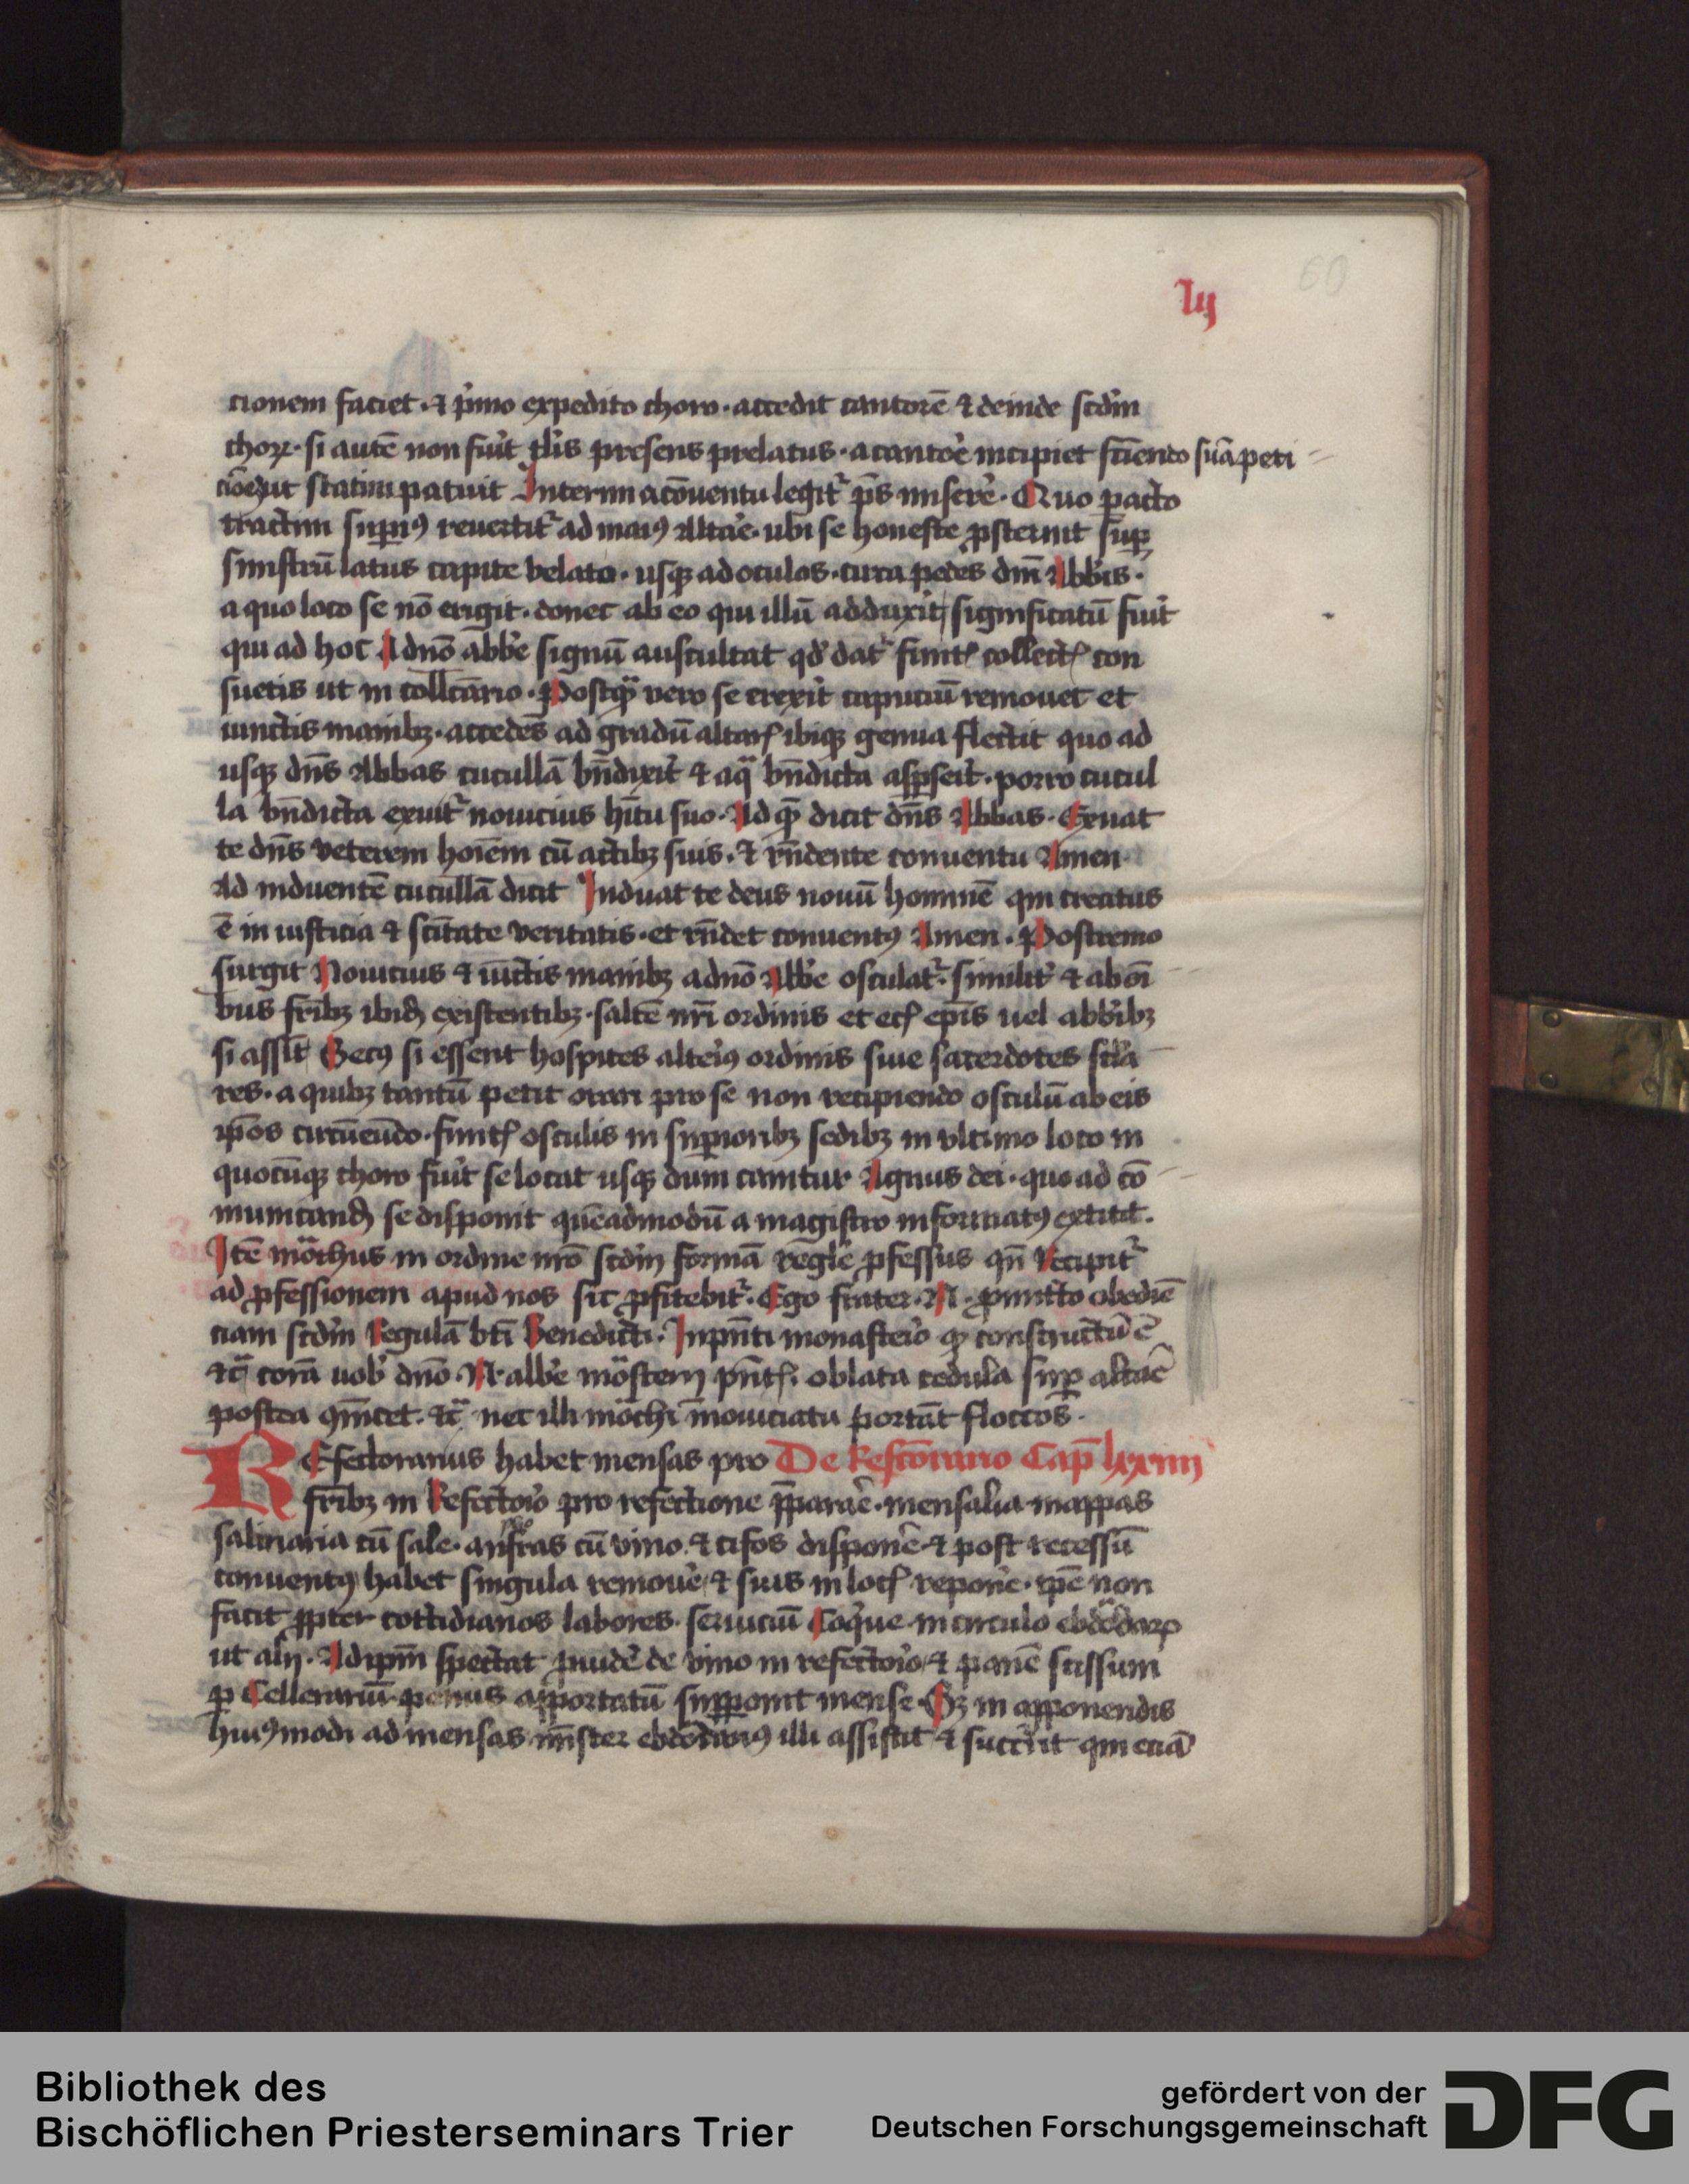 60
lij
cionem faciet · ⁊ p̓mo expedito choro · accedit cantorē ⁊ deinde scd̓m
choꝝ · si autē non fuit̓ tl̓is presens prelatus · a cantor̓e incipiet faciendo suā peti
cōem ut statim patuit Interim a cōuentu legit̓ ps̄ miserere · Quo peracto
tractim supius reuertit̓ ad maiꝯ altare · ubi se honeste ꝓsternit sup
sinistrū latus capite velato · usqꝫ ad oculos · circa pedes dm̄ Abb̓is ·
a quo loco se nō erigit · donec ab eo qui illū adduxit significatū fuit̓
qui ad hoc A dnō abb̓e signū auscultat qd̓ dat̓ finit̓ collect̓ con
suetis ut in collcāio · Postqᷓ vero se erexit̓ caputiū remouet et
iunctis manibꝫ · accedēs ad gradū altar̓ ibiqꝫ genua flectit quo ad
usqꝫ dn̄s Abbas cucullā bn̄dixit̓ ⁊ aqᷓ bn̄dicta asp̱serit̓ · porro cucul
la bn̄dicta exuit̓ nouicius hītu suo · Ad qd̓ dicit dn̄s Abbas · Exuat
te dn̄s veterem hoīem cū actibꝫ suis · ⁊ rn̄dente conuentu Amen ·
Ad induentē cucullā dicit Induat te deus nouū hominē qui creatus
ē in iusticia ⁊ sc̄itate veritatis · et rn̄det conuentꝯ Amen · Postremo
surgit Nouicius ⁊ iūctis manibꝫ a dnō Abb̓e osculat̓ · similit̓ ⁊ ab oī
bus frībꝫ ibid̓ existentibꝫ · saltē nr̄i ordinis et ec̓ ep̄is uel abb̓ibꝫ
si assīt Secꝯ si essent hospites alteriꝯ ordinis siue sacerdotes scl̓a
res · a quibꝫ tantū petit orari pro se non recipiendo osculū ab eis
ip̄os circūeūdo · finit̓ osculis in sup̱ioribꝫ sedibꝫ in ultimo loco in
quocūqꝫ choro fuit̓ se locat usqꝫ dum canitur Agnus dei · quo ad cō
municand̓ se disponit quēadmodū a magistro informatꝯ extitit ·
Itē mōchus in ordine nr̄o scd̓m formā regl̓e ꝓfessus qn̄ Recipit̓
ad ꝓfessionem apud nos sic ꝓfitebit̓ · Ego frater · N · ꝓmitto obediē
ciam scd̓m Regulā bt̄i Benedicti · In pn̄ti monasterio qd̓ constructū ē
⁊c̄ corā uob̓ dnō · N · abb̓e mōsterij pn̄t̓ · oblata cedula sup altar̓e
postea ⁊c̄ nec illi mōchi in nouiciatu portāt floccos ·
REfectorarius habet mensas pro De Refectorario Cap̄ lxxiiij
frībꝫ in Refectorio pro refectione p̄parare · mensalia mappas
salinaria cū sale · anfras cū vino · ⁊ cifos disponere · ⁊ post recessū
conuentꝯ habet singula remouer̓e ⁊ suis in loc̓ reponer̓e · ip̄e non
facit ꝓpter cottidianos labores · seruiciū Coq̓ne · in circulo ebdōdaꝝ
ut alij · Ad ip̄m spectat ꝓuider̓e de vino in refectorio ⁊ panē scissum
ꝑ Cellerariū penus apportatū supponit mense · Sꝫ in apponendis
huiꝯmodi ad mensas mīster ebdōdariꝯ illi assistit ⁊ succ̓rit qui etiā
Bibliothek des
Bischöflichen Priesterseminars Trier
gefördert von der
Deutschen Forschungsgemeinschaft
DFG